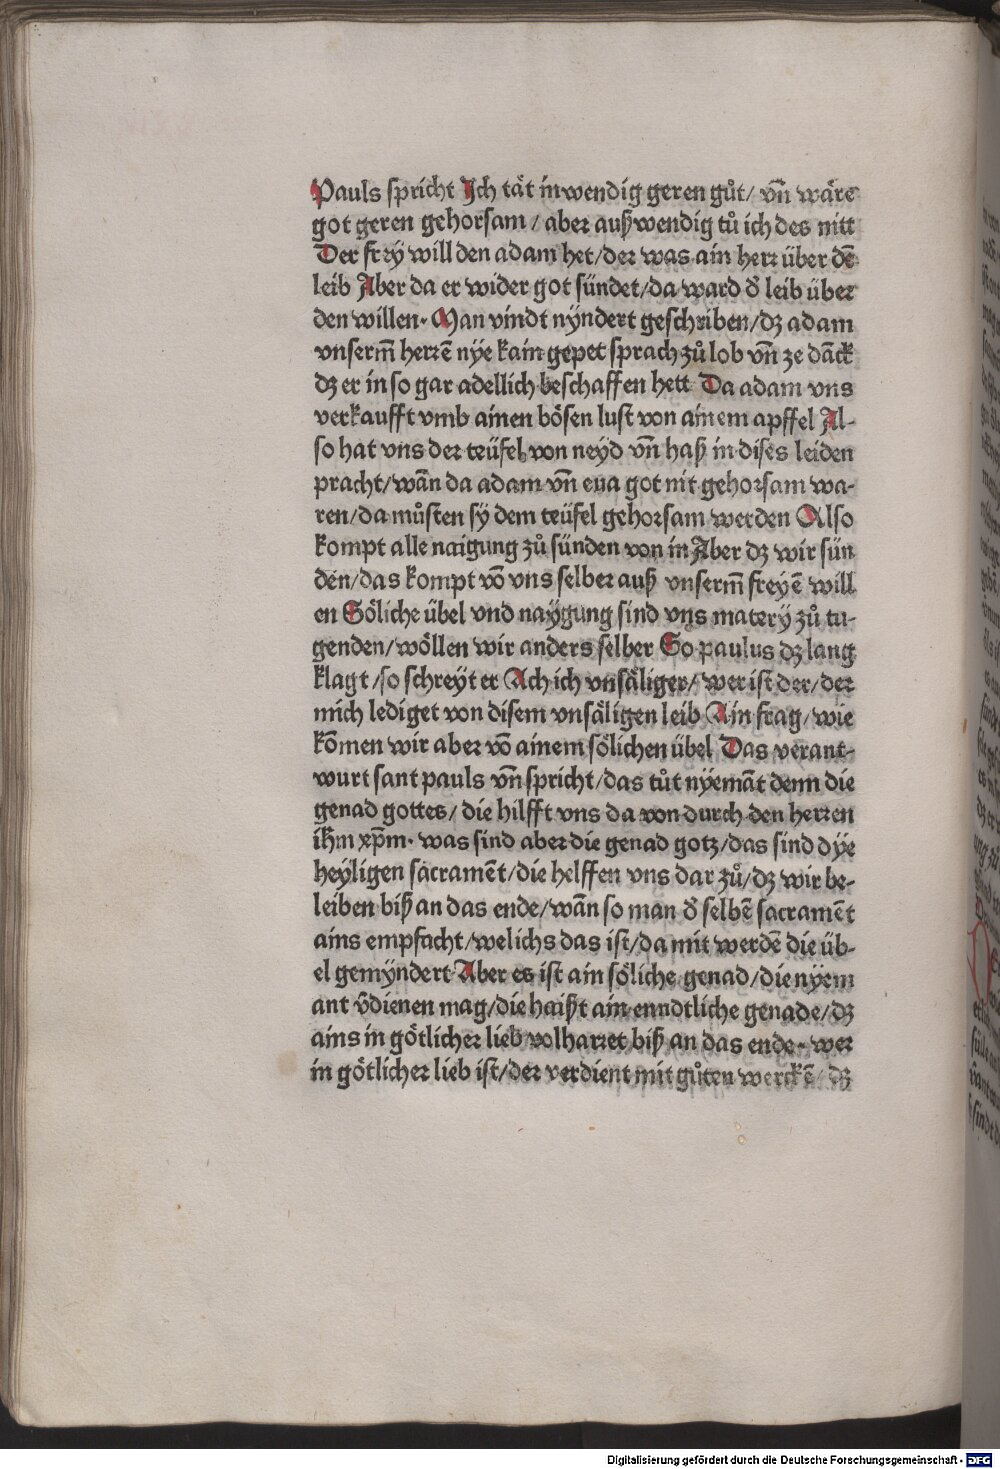 Pauls spricht Jch tät inwendig geren gůt/ vn̄ wäre
got geren gehorsam/ aber außwendig tů ich des nitt
Der frey will den adam het/der was ain herr über dē
leib Aber da er wider got sündet/da ward d̄ leib über
den willen· Man vindt nyndert geschriben/dz adam
vnserm̄ herrē nye kain gepet sprach zů lob vn̄ ze dāck
dz er in so gar adellich beschaffen hett Da adam vns
verkaufft vmb ainen bösen lust von ainem apffel Al-
so hat vns der teüfel von neyd vn̄ haß in dises leiden
pracht/wān da adam vn̄ eua got nit gehorsam wa-
ren/da můsten sy dem teüfel gehorsam werden Also
kompt alle naigung zů sünden von in Aber dz wir sün
den/das kompt vō vns selber auß vnserm̄ freyē will
en Söliche übel vnd naygung sind vns matery zů tu-
genden/wöllen wir anders selber So paulus dz lang
klagt/so schreyt er Ach ich vnsäliger/ wer ist der/der
mich lediget von disem vnsäligen leib Ain frag/wie
kōmen wir aber vō ainem sölichen übel Das verant-
wurt sant pauls vn̄ spricht/das tůt nyemāt denn die
genad gottes/ die hilfft vns da von durch den herren
ihm̄ xp̄m· was sind aber die genad gotz/das sind dye
heyligen sacramēt/die helffen vns dar zů/dz wir be-
leiben biß an das ende/wān so man d̄ selbē sacramēt
ains empfacht/welichs das ist/da mit werdē die üb-
el gemyndert Aber es ist ain söliche genad/die nyem
ant v̄dienen mag/die haißt ain enndtliche genade/dz
ains in götlicher lieb volharret biß an das ende· wer
in götlicher lieb ist/der verdient mit gůten werckē/ dz
Digitalisierung gefördert durch die Deutsche Forschungsgemeinschaft - DFG